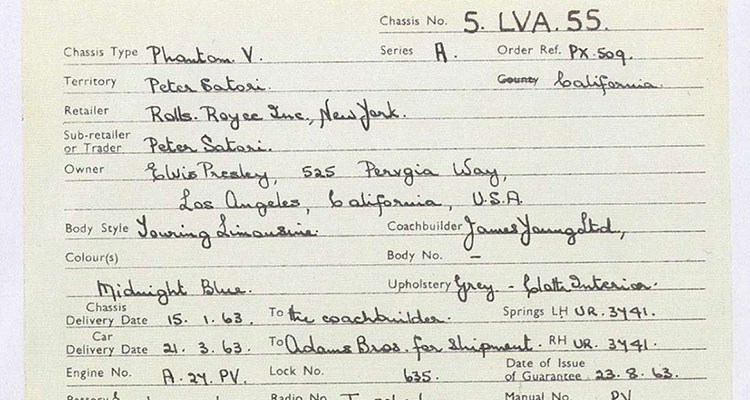 Chassis No. 5. LVA. 55.
Chassis Type Phantom. V. Series A. Order Ref. PX. 509.
Territory Peter Satori. County California.
Retailer Rolls. Royce Inc., New York.
Sub-retailer
or Trader Peter Satori.
Owner Elvis Presley, 525 Perugia Way,
Los Angeles, California, U.S.A.
Body Style Touring Limousine. Coachbuilder James Young Ltd,
Colour(s) Body No. –
Midnight Blue. Upholstery Grey - Cloth Interior.
Chassis
Delivery Date 15. 1. 63. To the coachbuilder. Springs LH UR. 3741.
Car
Delivery Date 21. 3. 63. To Adams Bros. for Shipment. RH UR. 3741.
Engine No. A. 27. PV. Lock No. 635. Date of Issue
of Guarantee 23. 8. 63.
Radio No. Manual No. PV